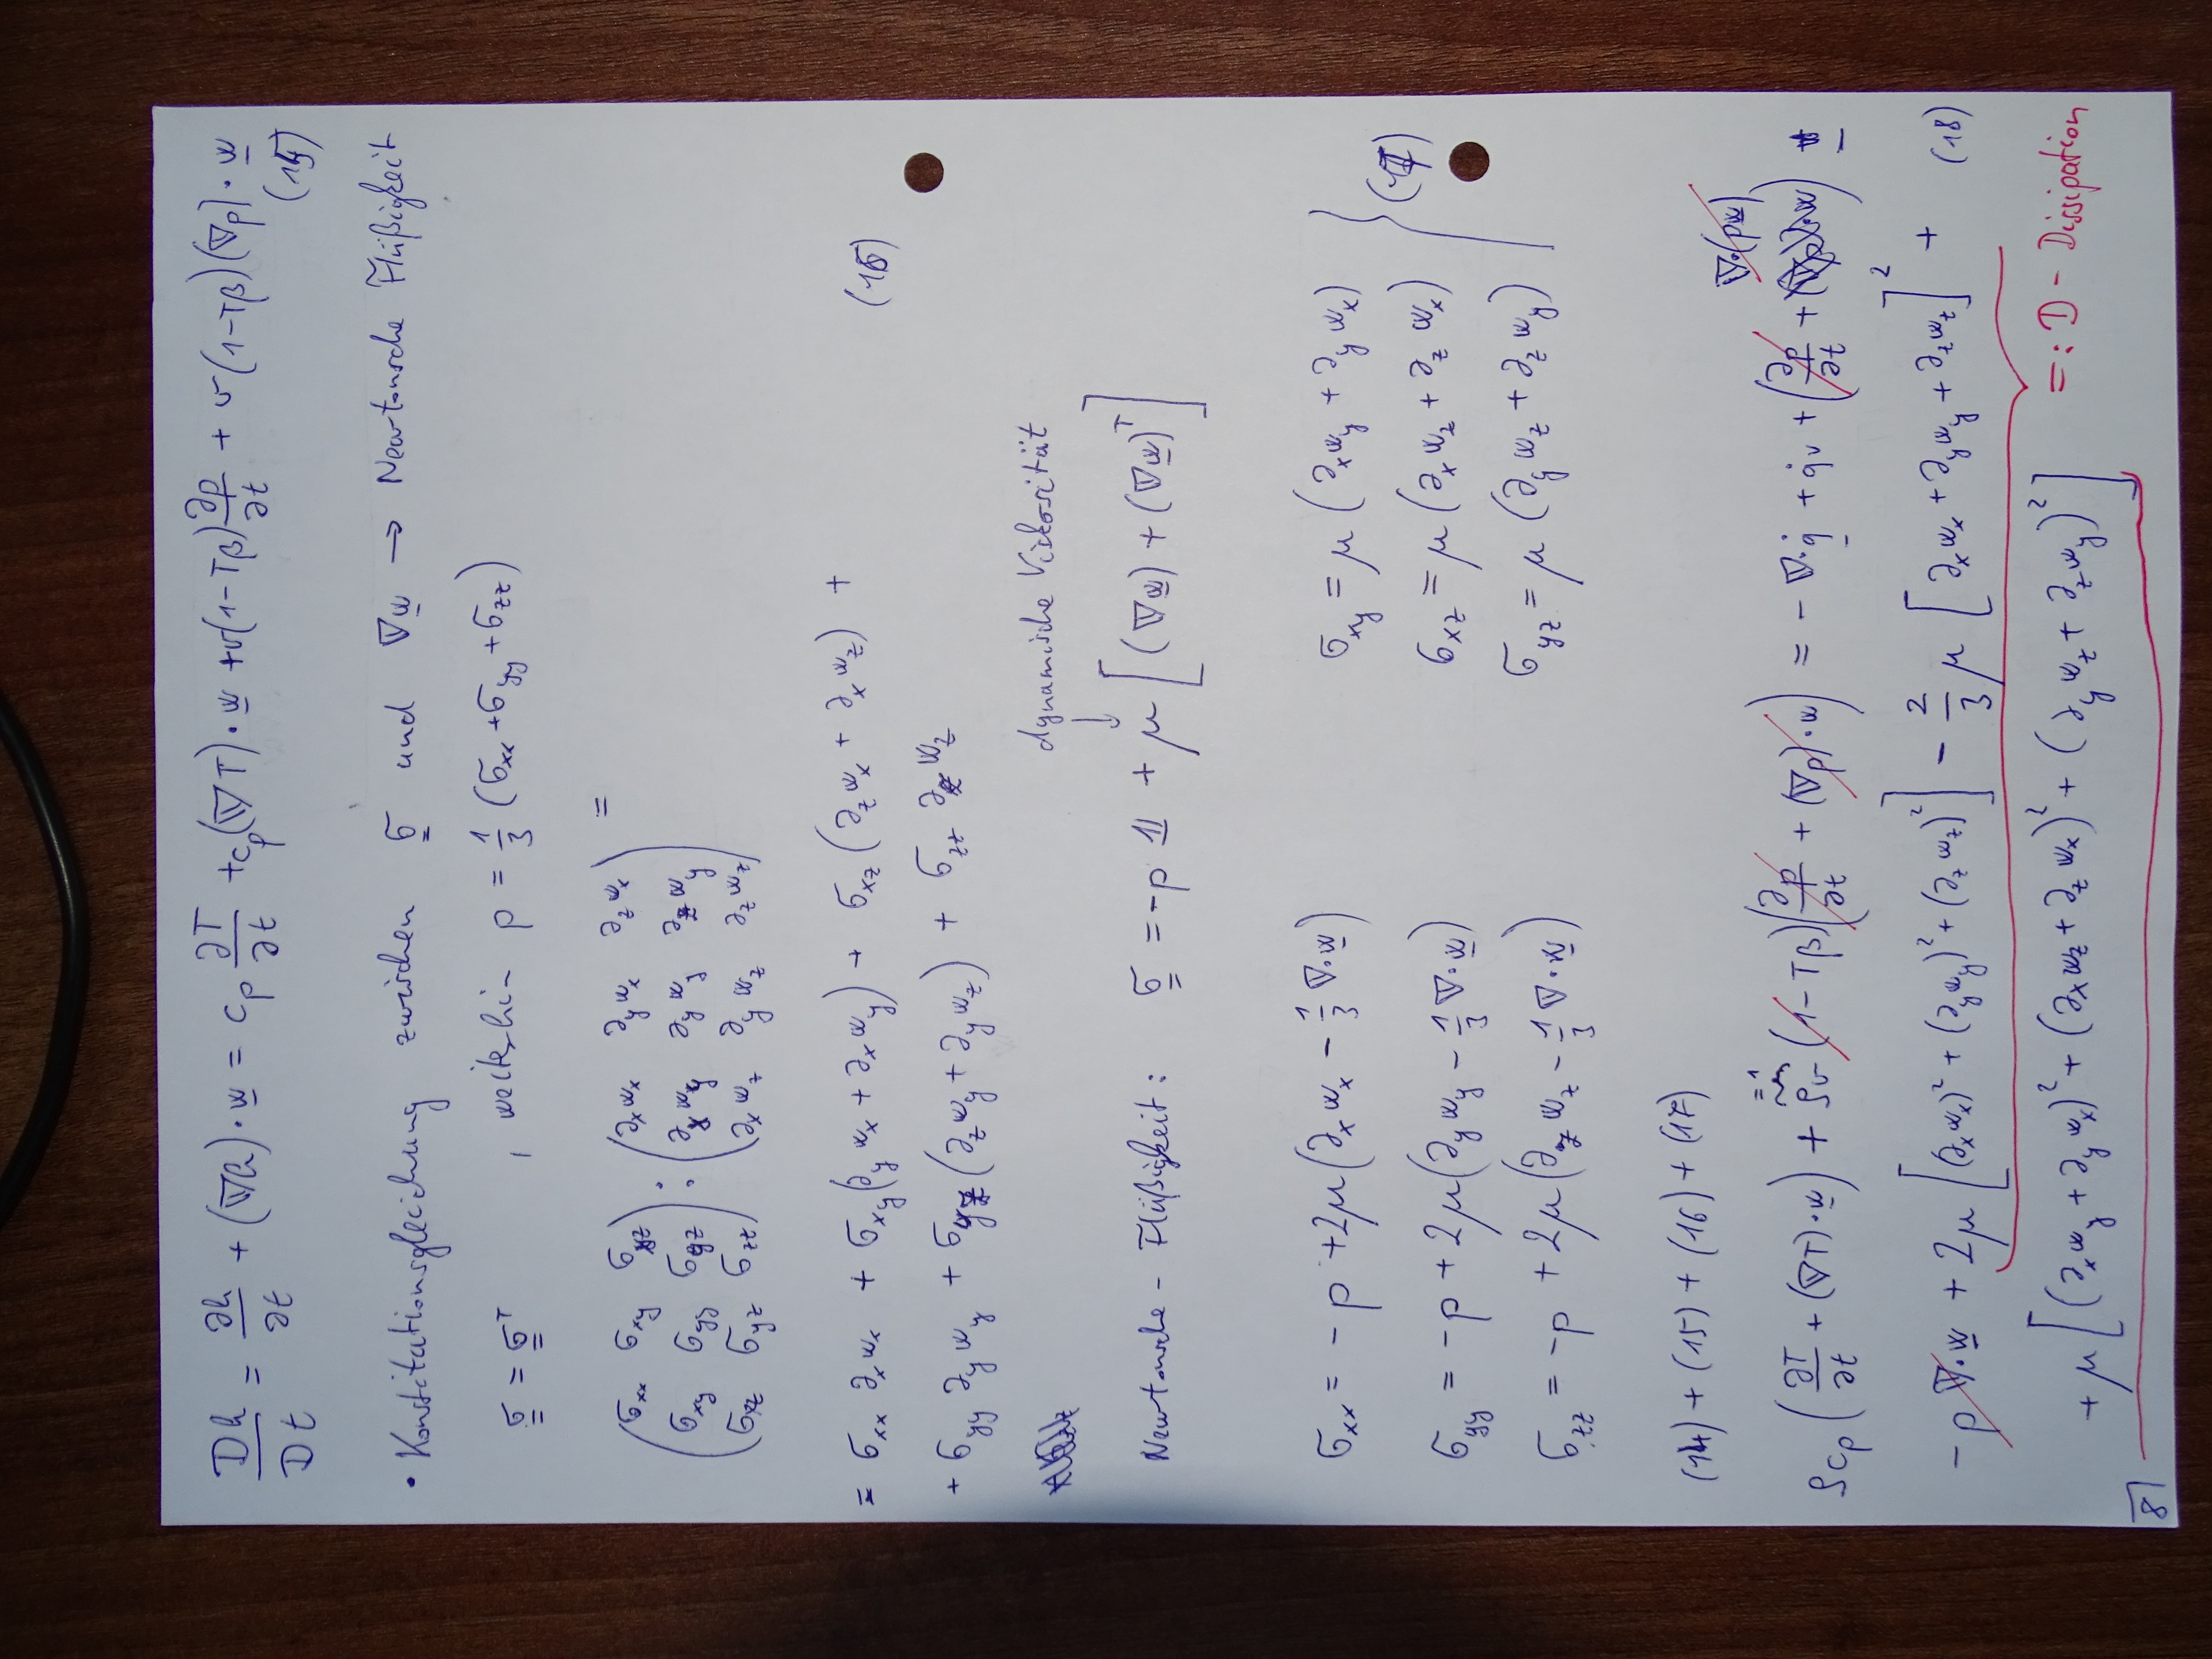 Dh/Dt = ∂h/∂t + (∇h)·w = c_p ∂T/∂t + c_p(∇T)·w + v(1-Tβ)∂p/∂t + v(1-Tβ)(∇p)·w
(15)
• Konstitutionsgleichung zwischen σ und ∇w → Newtonsche Flüßigkeit
σ = σ^T , weiterhin p = 1/3 (σ_xx + σ_yy + σ_zz)
(σ_xx σ_xy σ_xz) : (∂_x w_x ∂_y w_x ∂_z w_x) =
(σ_xy σ_yy σ_yz) (∂_x w_y ∂_y w_y ∂_z w_y)
(σ_xz σ_yz σ_zz) (∂_x w_z ∂_y w_z ∂_z w_z)
= σ_xx ∂_x w_x + σ_xy(∂_y w_x + ∂_x w_y) + σ_xz(∂_z w_x + ∂_x w_z) +
+ σ_yy ∂_y w_y + σ_yz(∂_z w_y + ∂_y w_z) + σ_zz ∂_z w_z (16)
dynamische Viskosität
Newtonsche-Flüßigkeit: σ = -p 1 + μ[(∇w) + (∇w)^T]
σ_xx = -p + 2μ(∂_x w_x - 1/3 ∇·w) σ_xy = μ(∂_x w_y + ∂_y w_x)
σ_yy = -p + 2μ(∂_y w_y - 1/3 ∇·w) σ_xz = μ(∂_x w_z + ∂_z w_x) (17)
σ_zz = -p + 2μ(∂_z w_z - 1/3 ∇·w) σ_yz = μ(∂_y w_z + ∂_z w_y)
(14) + (15) + (16) + (17)
=1 ∇·(pw)
ρc_p(∂T/∂t + (∇T)·w) + ρv(1-Tβ)(∂p/∂t + (∇p)·w) = -∇·q̇ + q̇_v + (∂p/∂t + ) -
-p∇·w + 2μ[(∂_x w_x)² + (∂_y w_y)² + (∂_z w_z)²] - 2/3 μ[∂_x w_x + ∂_y w_y + ∂_z w_z]² + (18)
+ μ[(∂_x w_y + ∂_y w_x)² + (∂_x w_z + ∂_z w_x)² + (∂_y w_z + ∂_z w_y)²] =: D - Dissipation
8